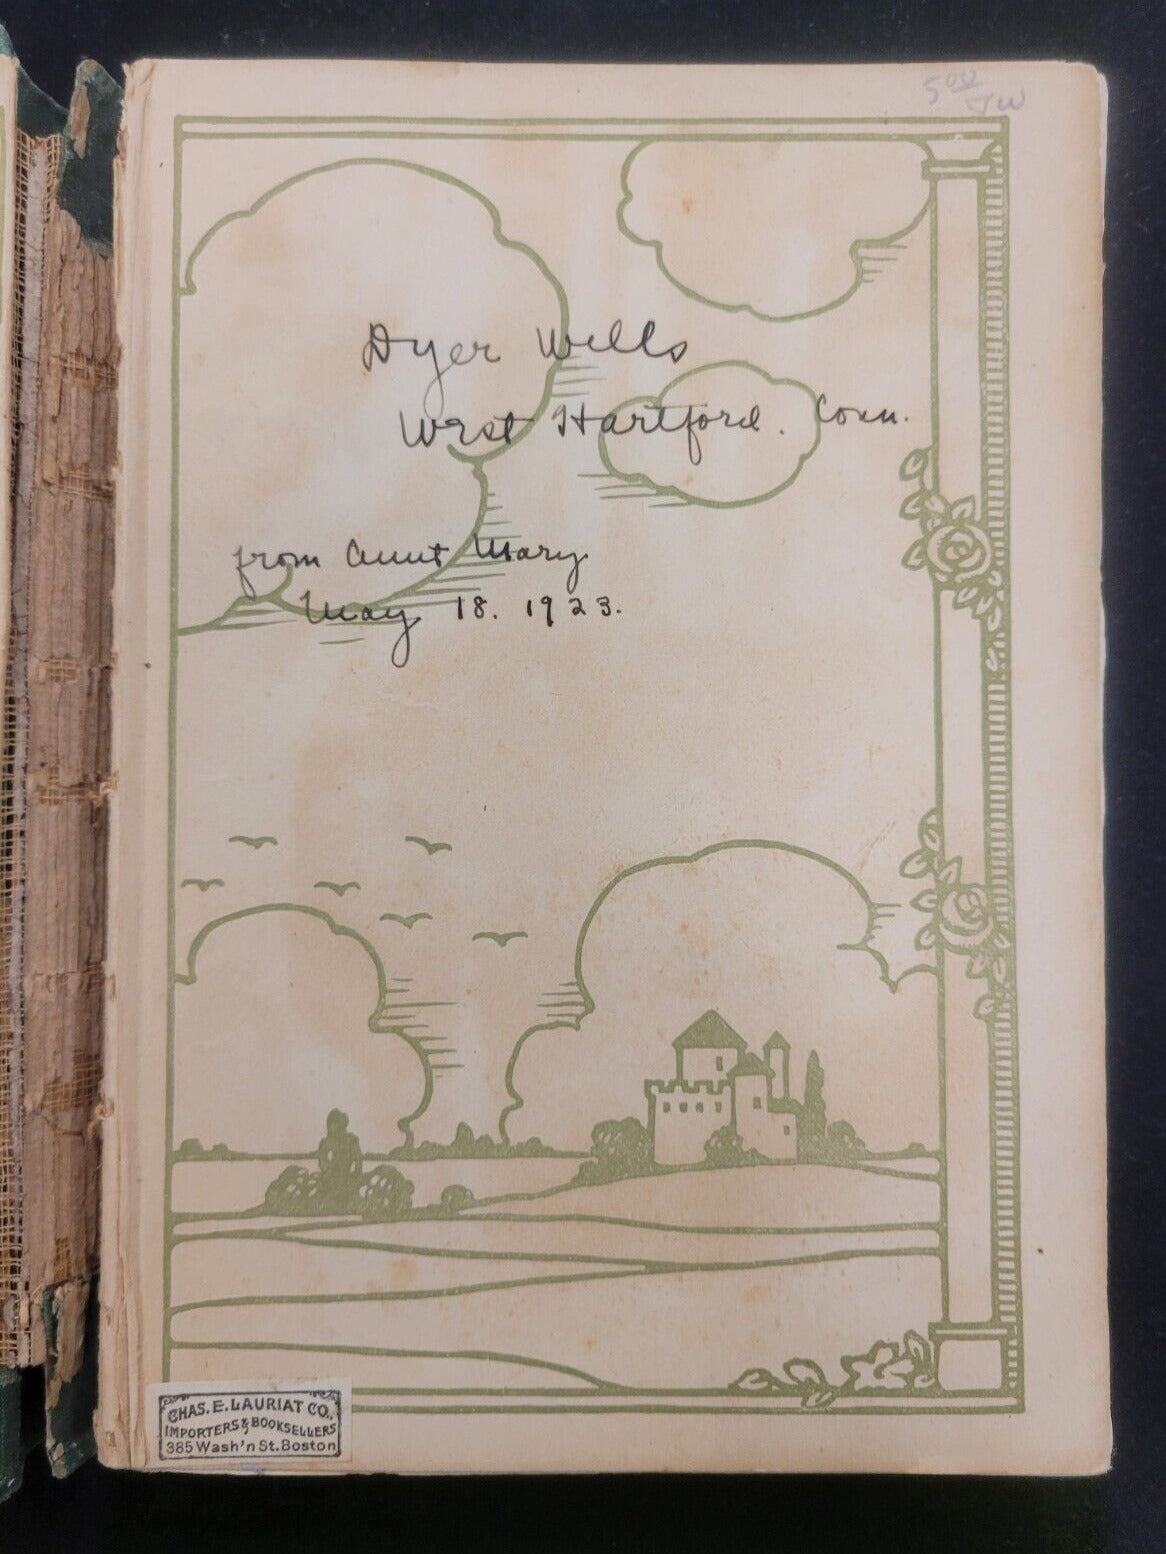 5.00
JW
Dyer Wells
West Hartford. Conn.
from Aunt Mary
May 18. 1923.
CHAS. E. LAURIAT CO.,
IMPORTERS & BOOKSELLERS
385 Wash'n St. Boston